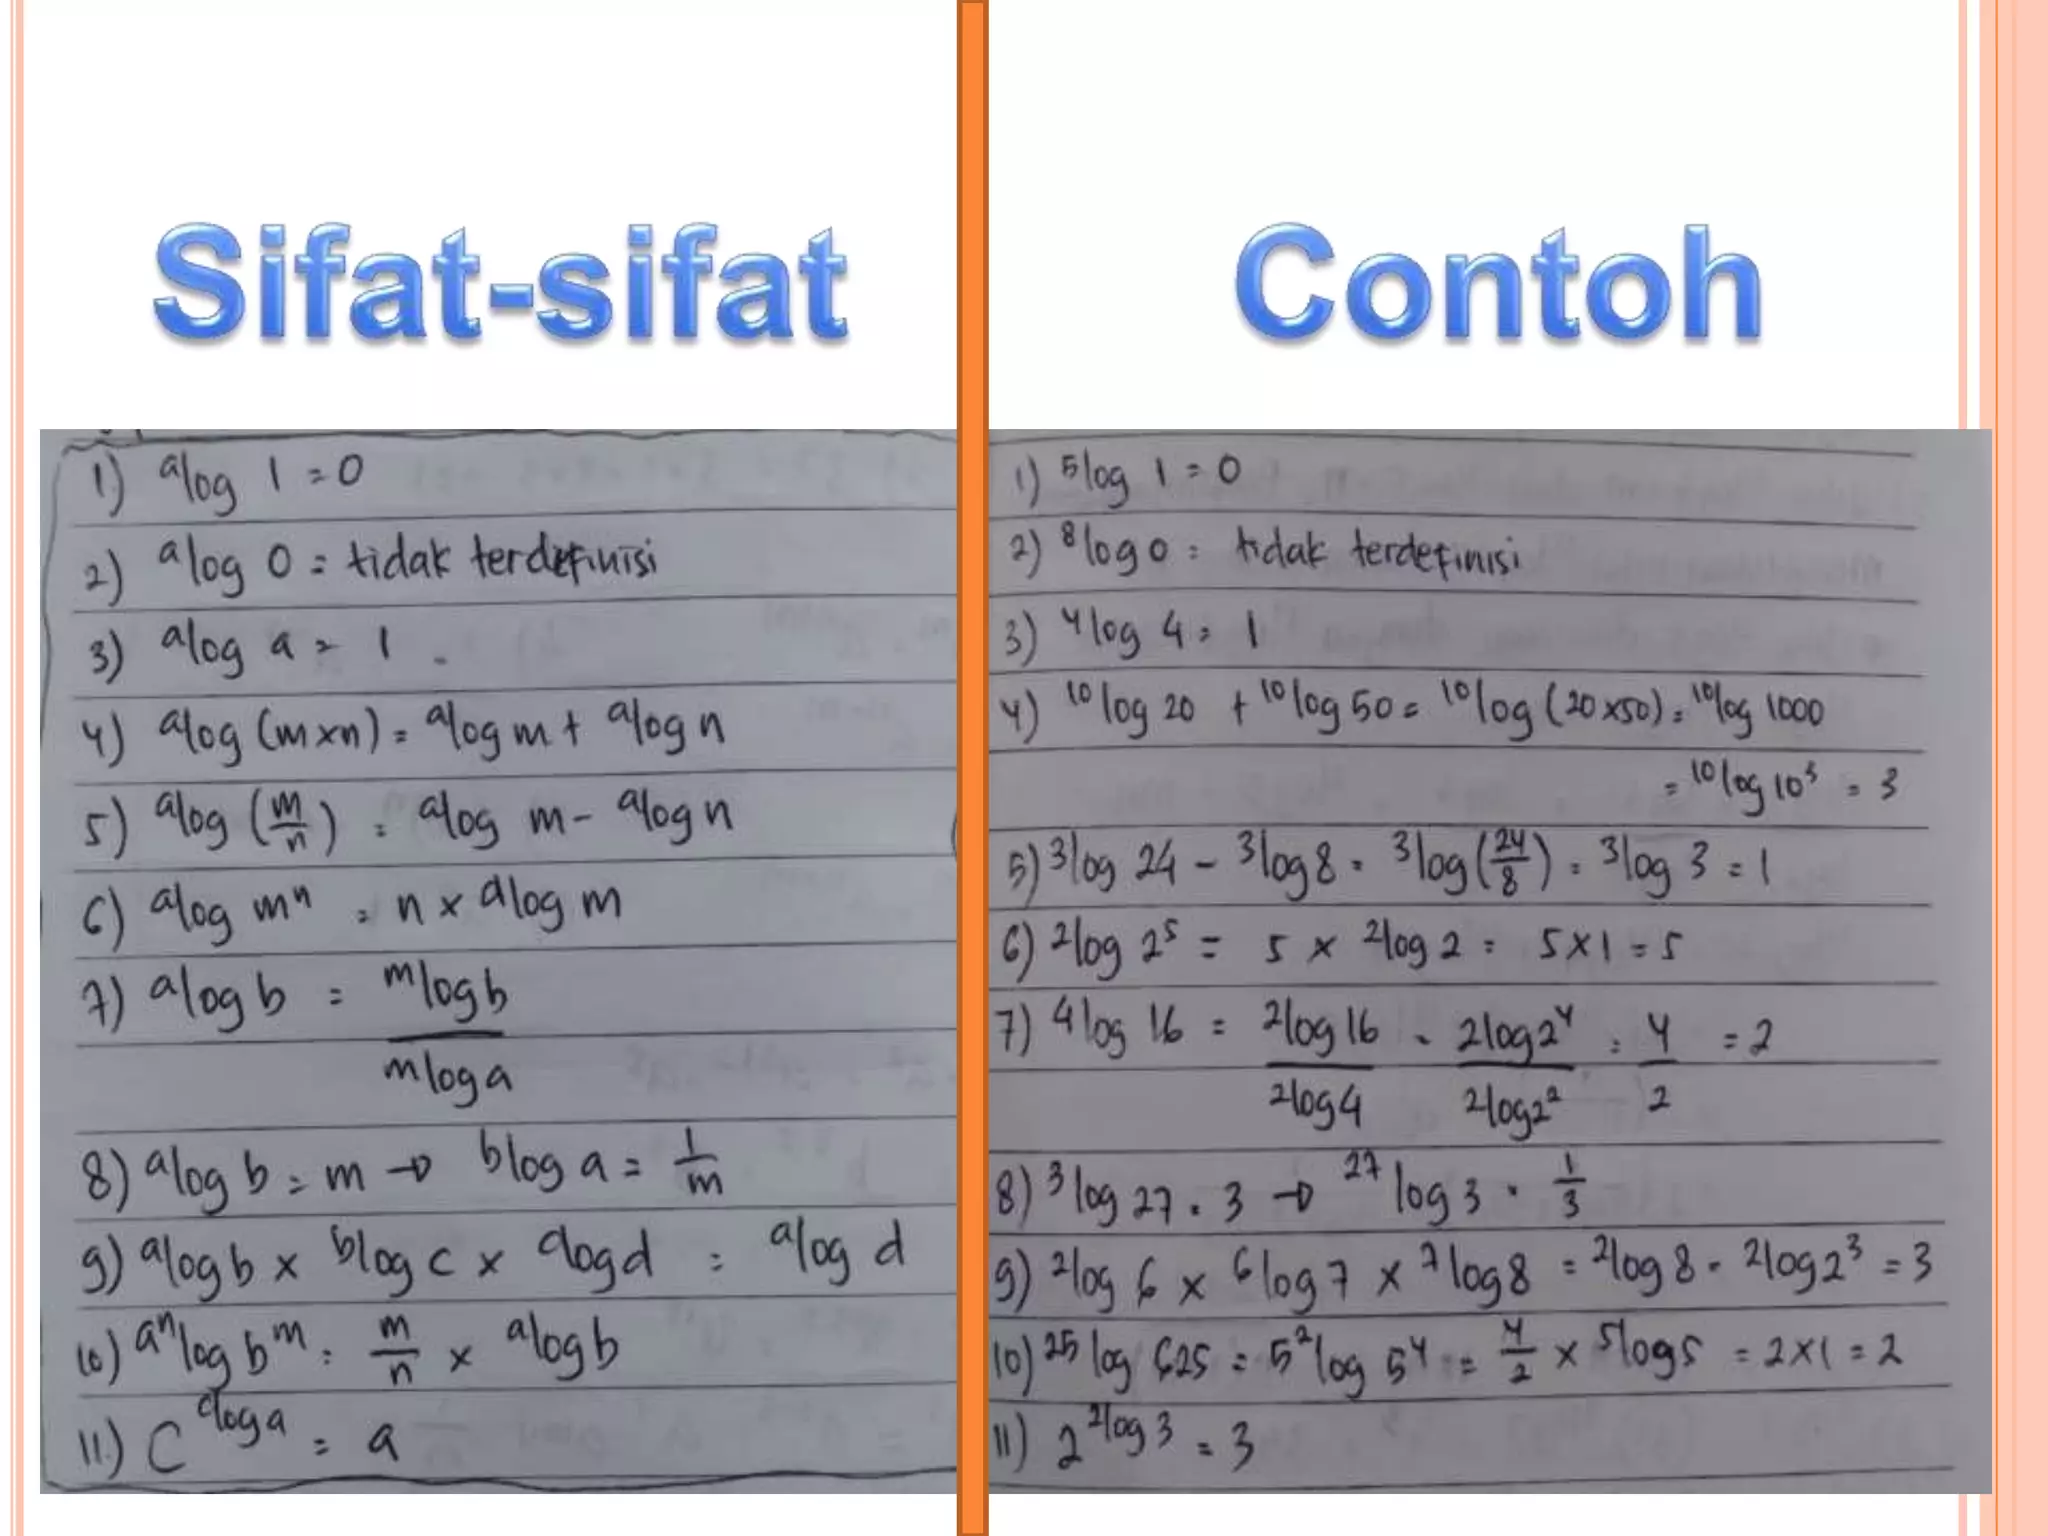 Sifat-sifat
1) ᵃlog 1 = 0
2) ᵃlog 0 = tidak terdefinisi
3) ᵃlog a = 1
4) ᵃlog (m×n) = ᵃlog m + ᵃlog n
5) ᵃlog (m/n) = ᵃlog m - ᵃlog n
6) ᵃlog mⁿ = n × ᵃlog m
7) ᵃlog b = ᵐlog b / ᵐlog a
8) ᵃlog b = m → ᵇlog a = 1/m
9) ᵃlog b × ᵇlog c × ᶜlog d = ᵃlog d
10) a^n log b^m = m/n × ᵃlog b
11) C^(ᶜlog a) = a
Contoh
1) ⁵log 1 = 0
2) ⁸log 0 = tidak terdefinisi
3) ⁴log 4 = 1
4) ¹⁰log 20 + ¹⁰log 50 = ¹⁰log (20×50) = ¹⁰log 1000
= ¹⁰log 10³ = 3
5) ³log 24 - ³log 8 = ³log (24/8) = ³log 3 = 1
6) ²log 2⁵ = 5 × ²log 2 = 5×1 = 5
7) ⁴log 16 = ²log 16 / ²log 4 = ²log 2⁴ / ²log 2² = 4/2 = 2
8) ³log 27 = 3 → ²⁷log 3 = 1/3
9) ²log 6 × ⁶log 7 × ⁷log 8 = ²log 8 = ²log 2³ = 3
10) ²⁵log 625 = 5^2 log 5⁴ = 4/2 × ⁵log 5 = 2×1 = 2
11) 2^(²log 3) = 3